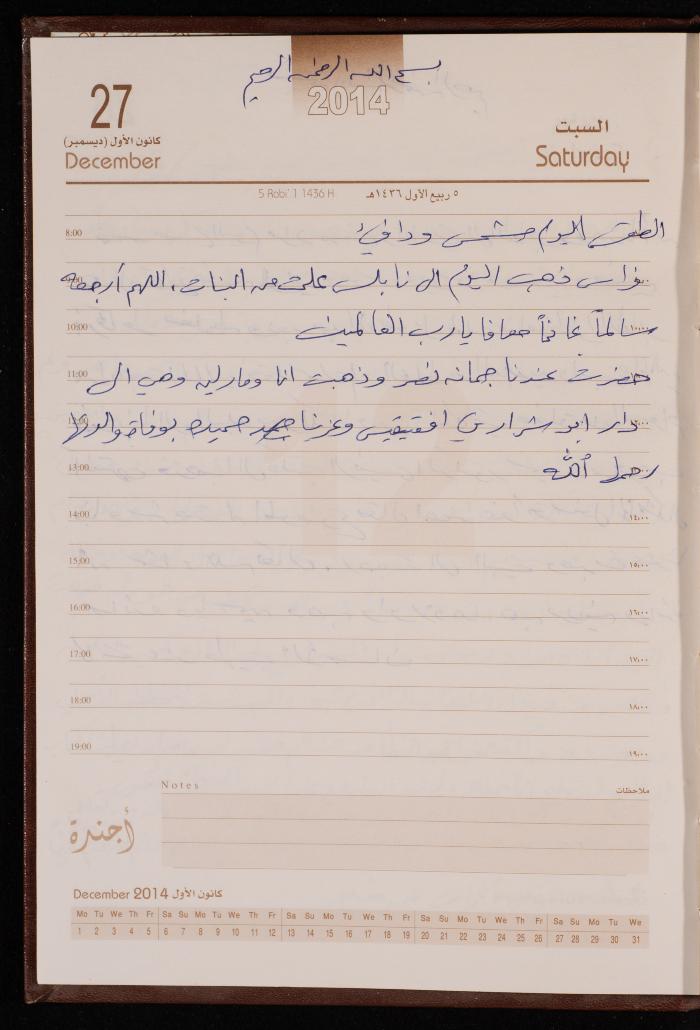 بسم الله الرحمن الرحيم
2014
27
كانون الأول (ديسمبر)
December
السبت
Saturday
5 Robi' 1 1436 H
٥ ربيع الأول ١٤٣٦هـ
8:00
الطقس اليوم مشمس ودافئ
فراس ذهب اليوم الى نابلس علمت من البنات، اللهم أرجعه
10:00
١٠:٠٠
سالماً غانماً معافا يارب العالمين
11:00
حضرت عندنا جمانه نصر وذهبت انا ومارلين وهي الى
دار ابو شرار في افقيقيس وعزينا حميده بوفاة والدها
13:00
رحمه الله
14:00
١٤:٠٠
15:00
١٥:٠٠
16:00
١٦:٠٠
17:00
١٧:٠٠
18:00
١٨:٠٠
19:00
١٩:٠٠
Notes
ملاحظات
أجندة
December 2014 كانون الأول
Mo Tu We Th Fr Sa Su Mo Tu We Th Fr Sa Su Mo Tu We Th Fr Sa Su Mo Tu We Th Fr Sa Su Mo Tu We
1 2 3 4 5 6 7 8 9 10 11 12 13 14 15 16 17 18 19 20 21 22 23 24 25 26 27 28 29 30 31